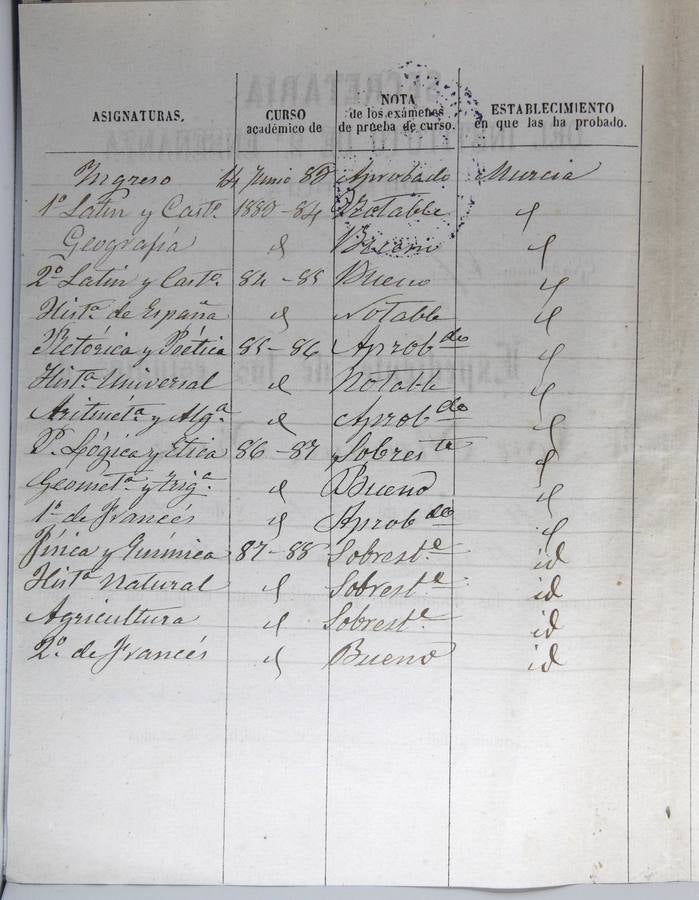 ASIGNATURAS. CURSO académico de NOTA de los exámenes de prueba de curso. ESTABLECIMIENTO en que las ha probado.
Ingreso 14 Junio 80 Aprobado Murcia
1º Latin y Castº. 1880-84 Notable id
Geografía id Bueno id
2º Latin y Castº. 84-85 Bueno id
Histª de España id Notable id
Retórica y Poética 85-86 Aprobdo id
Histª Universal id Notable id
Aritmétª y Algª id Aprobdo id
P. Lógica y Etica 86-87 Sobreste id
Geometª y Trigª. id Bueno id
1º de Francés id Aprobdo id
Física y Química 87-88 Sobreste id
Histª Natural id Sobreste id
Agricultura id Sobreste id
2º de Francés id Bueno id